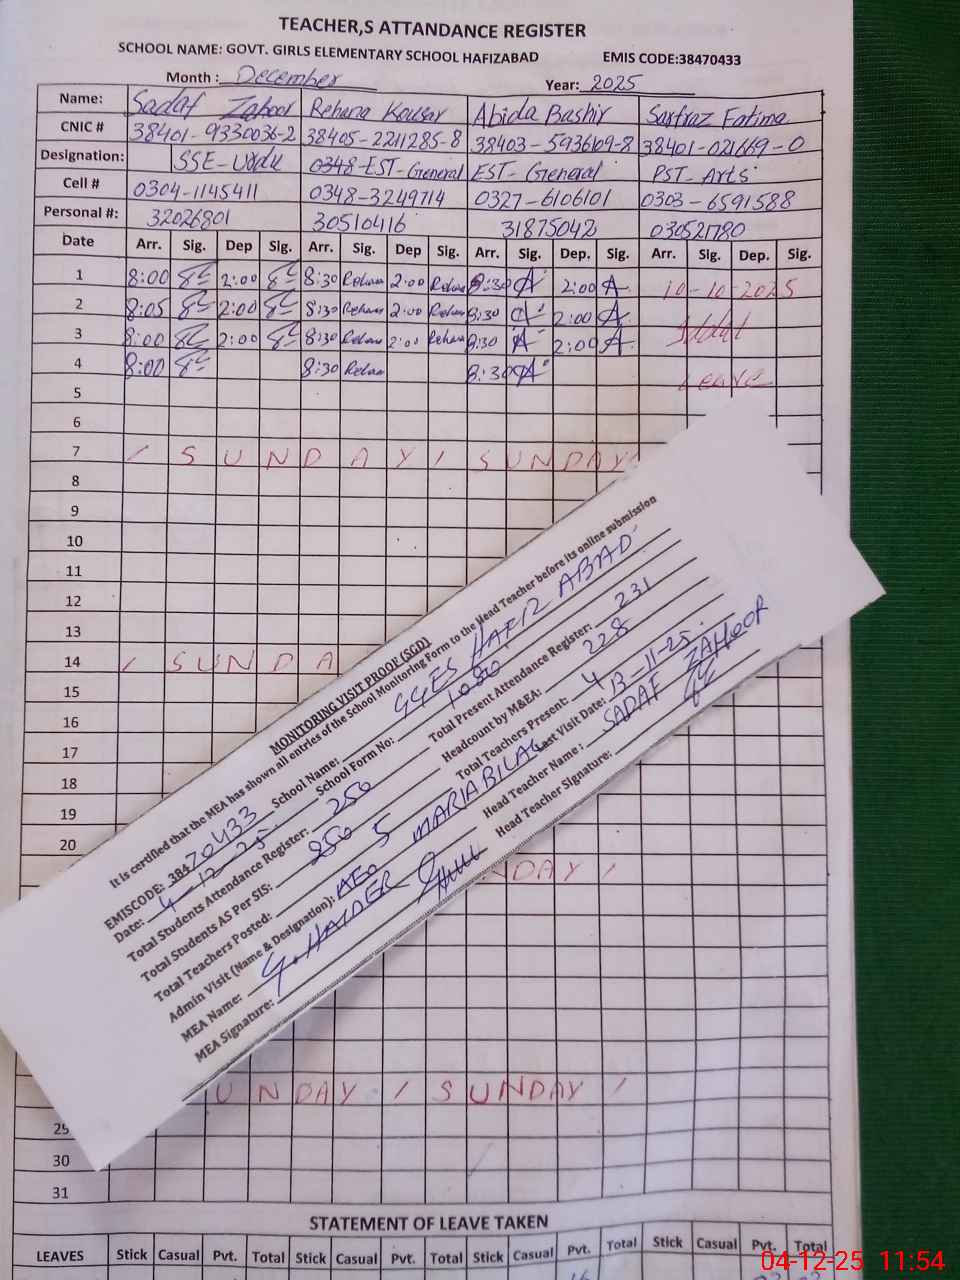 TEACHER,S ATTANDANCE REGISTER
SCHOOL NAME: GOVT. GIRLS ELEMENTARY SCHOOL HAFIZABAD EMIS CODE:38470433
Month : December Year: 2025
Name: Sadaf Zahoor Rehana Kousar Abida Bashir Sarfraz Fatima
CNIC # 38401-9330036-2 38405-2211285-8 38403-5936109-8 38401-021669-0
Designation: SSE-Urdu 0348-EST-General EST-General PST-Arts
Cell # 0304-1145411 0348-3249714 0327-6106101 0303-6591588
Personal #: 32026801 30510416 31875042 030521780
Date Arr. Sig. Dep Sig. Arr. Sig. Dep Sig. Arr. Sig. Dep. Sig. Arr. Sig. Dep. Sig.
1 8:00 2:00 8:30 Rehana 2:00 Rehana 8:30 A 2:00 A 10-10-2025
2 8:05 2:00 8:30 Rehana 2:00 Rehana 8:30 A 2:00 A
3 8:00 2:00 8:30 Rehana 2:00 Rehana 8:30 A 2:00 A
4 8:00 8:30 Rehana 8:30 A Leave
5
6
7 / SUNDAY / SUNDAY
8
9
10
11
12
13
14 / SUNDA
15
16
17
18
19
20
NDAY /
UNDAY / SUNDAY /
29
30
31
MONITORING VISIT PROOF (SGD)
It is certified that the MEA has shown all entries of the School Monitoring Form to the Head Teacher before its online submission
EMISCODE: 38470433 School Name: GGES HAFIZ ABAD
Date: 4-12-25 School Form No: 1080
Total Students Attendance Register: 250 Total Present Attendance Register: 231
Total Students AS Per SIS: 250 Headcount by M&EA: 228
Total Teachers Posted: 5 Total Teachers Present: 4
Admin Visit (Name & Designation): AEO MARIA BILAL Last Visit Date: 13-11-25
MEA Name: G. HAIDER Head Teacher Name : SADAF ZAHOOR
MEA Signature: Head Teacher Signature:
STATEMENT OF LEAVE TAKEN
LEAVES Stick Casual Pvt. Total Stick Casual Pvt. Total Stick Casual Pvt. Total Stick Casual Pvt. Total
04-12-25 11:54